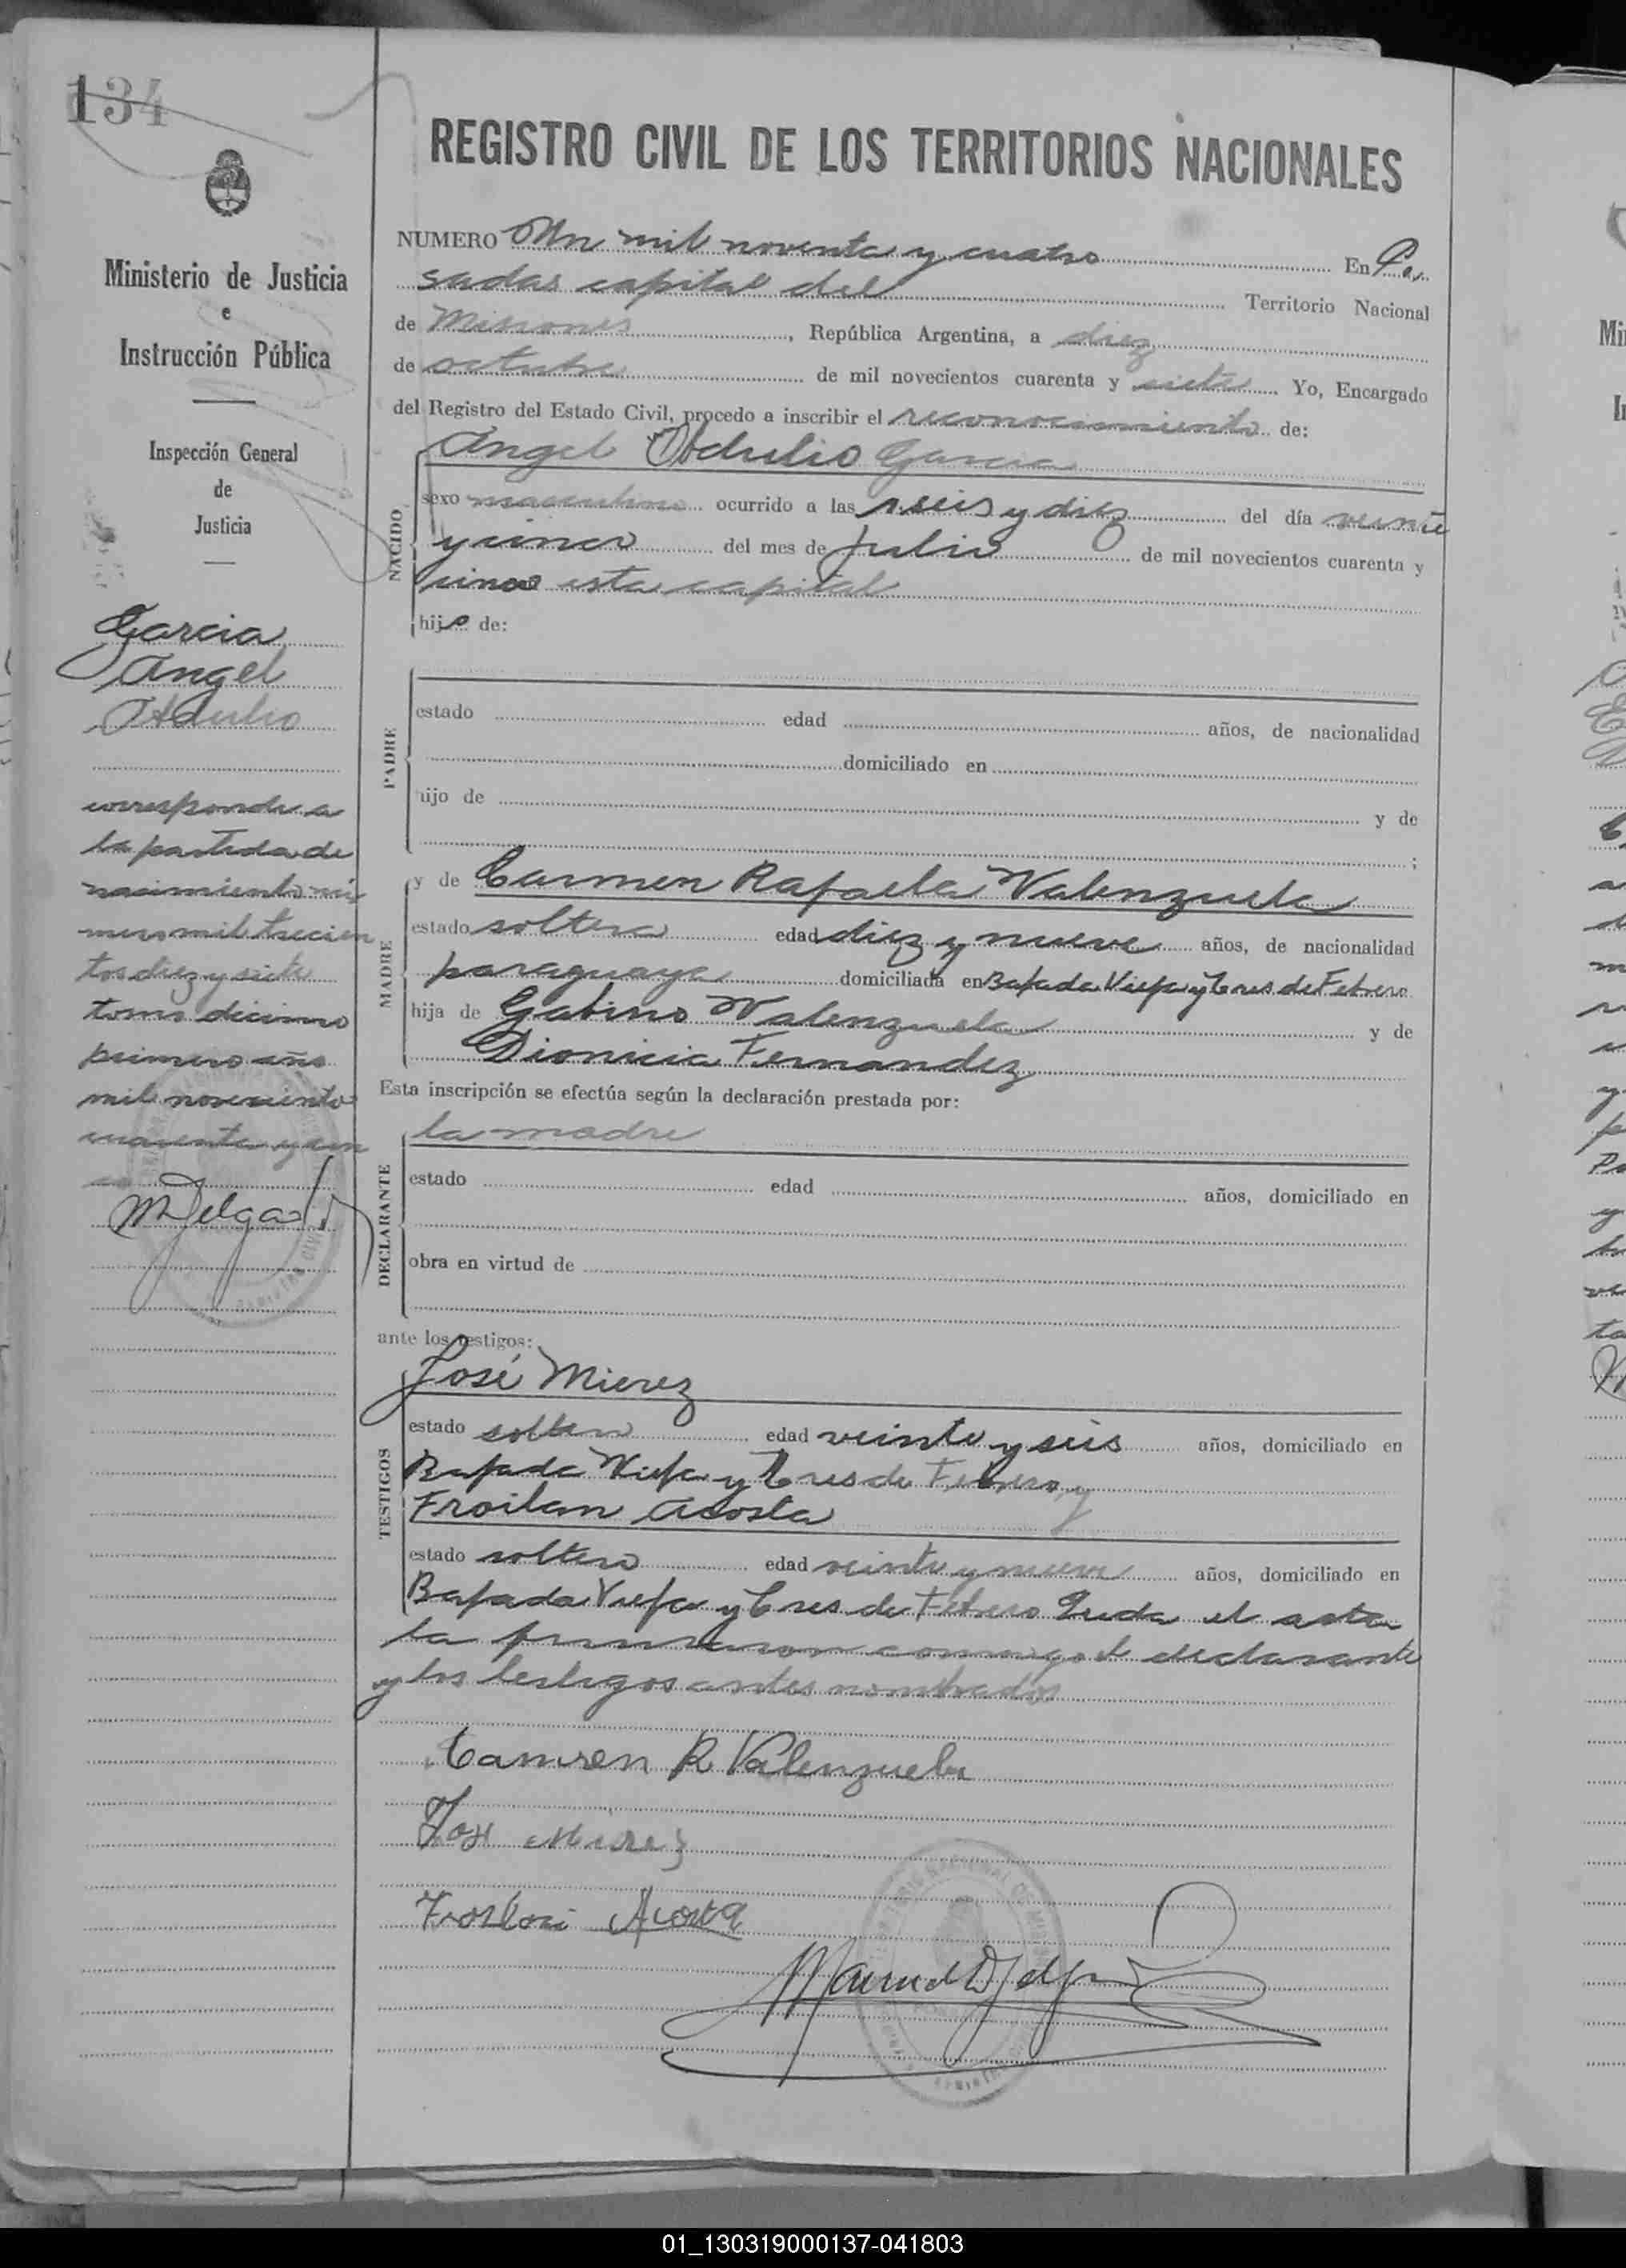 134
REGISTRO CIVIL DE LOS TERRITORIOS NACIONALES
Ministerio de Justicia
e
Instrucción Pública
Inspección General
de
Justicia
Garcia
Angel
Obdulio
corresponde a
la partida de
nacimiento nú
mero mil trecien
tos diez y siete
tomo décimo
primero año
mil novecientos
cuarenta y cin
co
MDelgado
NUMERO Un mil noventa y cuatro En Po
sadas capital del Territorio Nacional
de Misiones, República Argentina, a diez
de octubre de mil novecientos cuarenta y siete Yo, Encargado
del Registro del Estado Civil, procedo a inscribir el reconocimiento de:
NACIDO
Angel Obdulio Garcia
sexo masculino ocurrido a las seis y diez del día veinte
y cinco del mes de Julio de mil novecientos cuarenta y
cinco esta capital
hijo de:
PADRE
estado edad años, de nacionalidad
domiciliado en
hijo de y de
;
MADRE
y de Carmen Rafaela Valenzuela
estado soltera edad diez y nueve años, de nacionalidad
paraguaya domiciliada en Bajada Vieja y Tres de Febrero
hija de Gabino Valenzuela y de
Dionicia Fernandez
Esta inscripción se efectúa según la declaración prestada por:
DECLARANTE
la madre
estado edad años, domiciliado en
obra en virtud de
ante los testigos:
TESTIGOS
José Mierez
estado soltero edad veinte y seis años, domiciliado en
Bajada Vieja y Tres de Febrero y
Froilan Acosta
estado soltero edad veinte y nueve años, domiciliado en
Bajada Vieja y Tres de Febrero Leida el acta
la firmaron conmigo el declarante
y los testigos antes nombrados
Carmen R Valenzuela
Jose Mierez
Acosta
Manuel Delgado
01_130319000137-041803